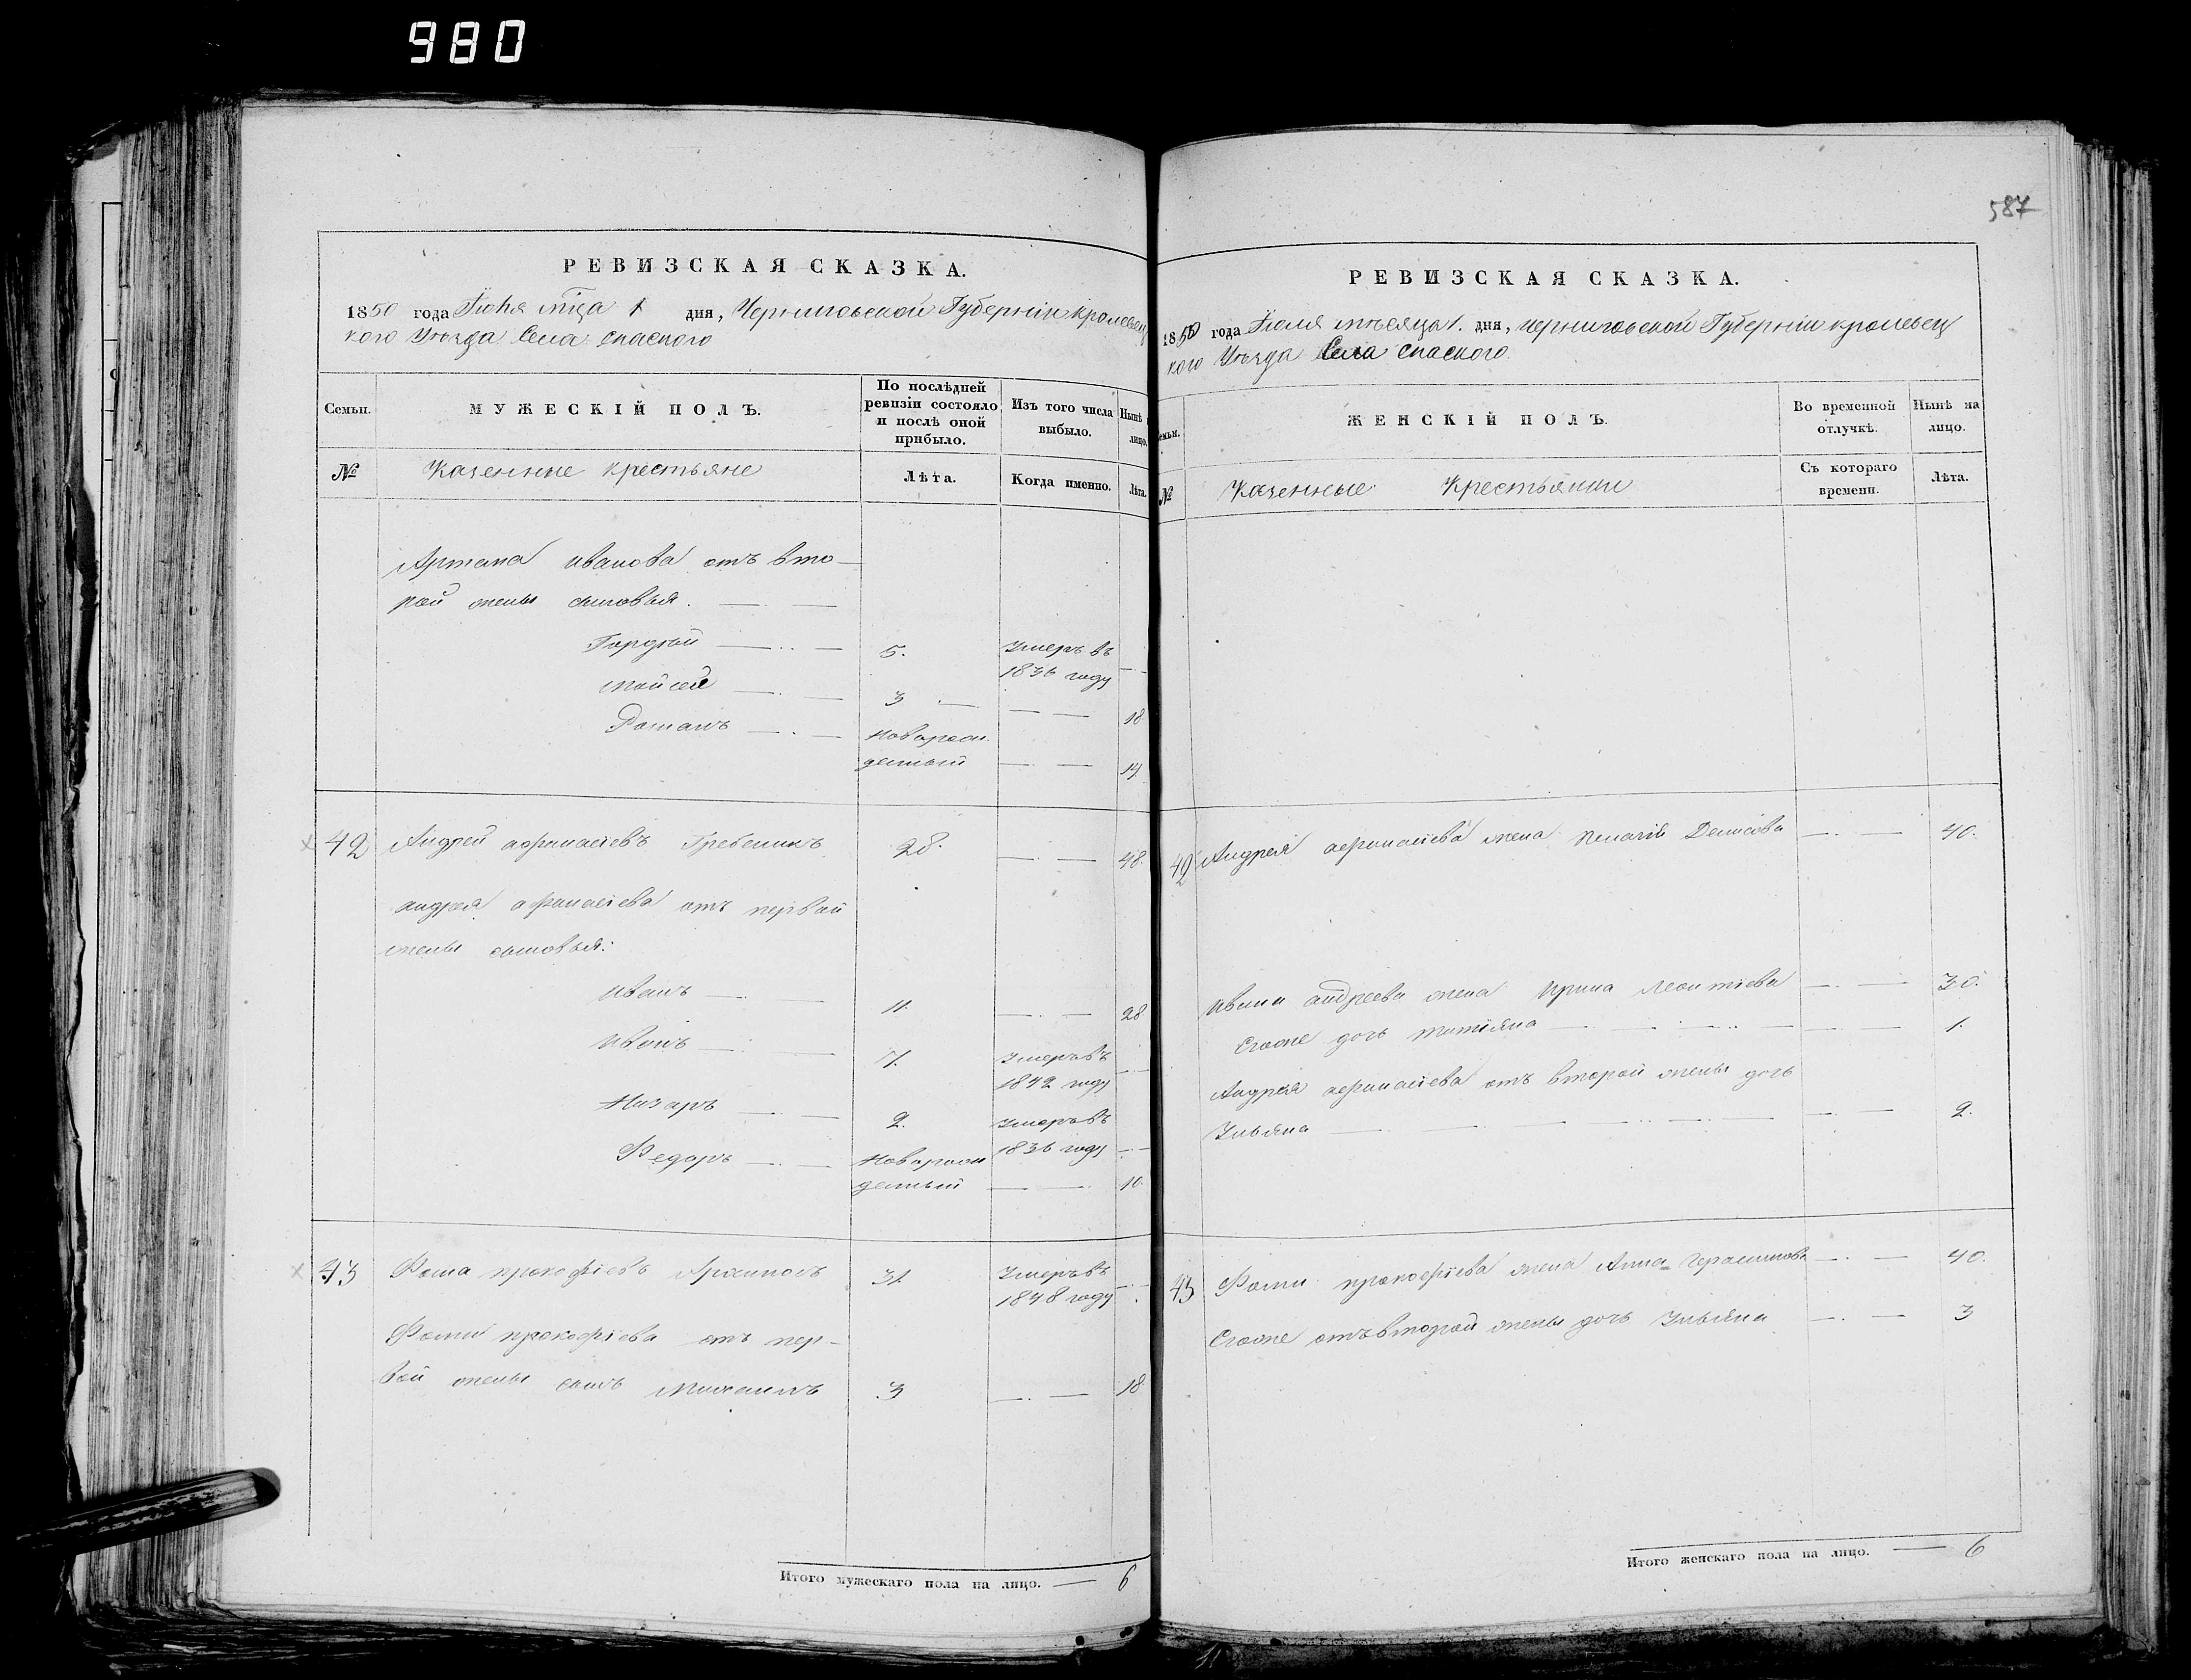 980
РЕВИЗСКАЯ СКАЗКА.
1850 года Іюня мца 1 дня, Черниговской Губерніи Кролевец
кого Уѣзда Села Спаского
Семьи. МУЖЕСКІЙ ПОЛЪ. По послѣдней ревизіи состояло и послѣ оной прибыло. Изъ того числа выбыло. Нынѣ лицо.
№ Казенные крестьяне Лѣта. Когда именно. Лѣта.
Артема Иванова отъ вто-
рой жены сыновья.
Гордѣй 5. Умеръ въ
1836 году
Мойсей 3 18
Романъ Новорож
денный 14
42 Андрей Афонасіевъ Гребеникъ 28. 48.
Андрея Афонасіева отъ первой
жены сыновья:
Иванъ 11. 28
Иванъ 7. Умеръ въ
1842 году
Назаръ 2. Умеръ въ
1836 году
Федоръ Новорож
денный 10.
43 Фома Прокофіевъ 31. Умеръ въ
1848 году
Фомы Прокофіева отъ пер-
вой жены сынъ Михаилъ 3 18.
Итого мужескаго пола на лицо. 6
587
РЕВИЗСКАЯ СКАЗКА.
1850 года Іюля мѣсяца 1. дня, Черниговской Губерніи Кролевец
кого Уѣзда Села Спаского
Семьи. ЖЕНСКІЙ ПОЛЪ. Во временной отлучкѣ. Нынѣ на лицо.
№ Казенные Крестьянки Съ котораго времени. Лѣта.
42 Андрея Афонасіева жена Пелагія Денисова 40.
Ивана Андреева жена Ирина Леонтіева 30.
Егоже дочь Татіяна 1.
Андрея Афонасіева отъ второй жены дочь
Ульяна 2.
43 Фомы Прокофіева жена Анна Герасимова 40.
Егоже отъ второй жены дочь Ульяна 3
Итого женскаго пола на лицо. 6